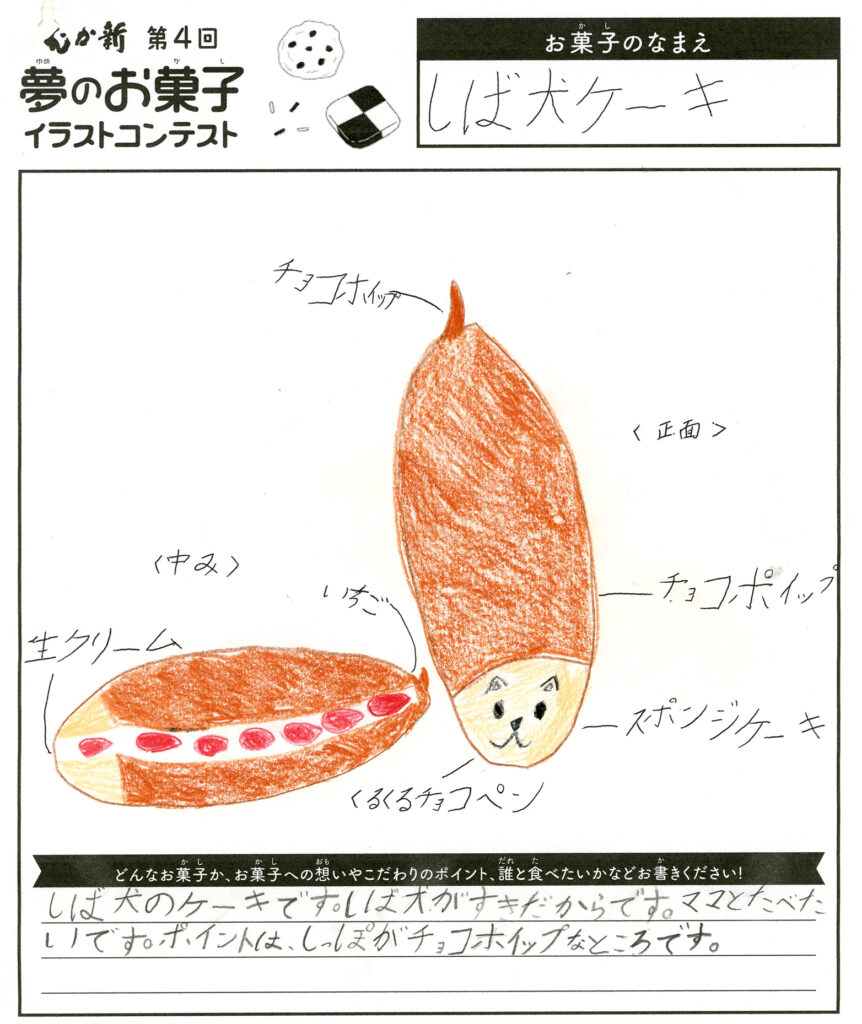 むか新 第4回
夢のお菓子
ゆめ か し
イラストコンテスト
お菓子のなまえ
か し
しば犬ケーキ
チョコホイップ
〈正面〉
〈中み〉
いちご
チョコホイップ
生クリーム
スポンジケーキ
くるくるチョコペン
どんなお菓子か、お菓子への想いやこだわりのポイント、誰と食べたいかなどお書きください!
か し か し おも だれ た か
しば犬のケーキです。しば犬がすきだからです。ママとたべた
いです。ポイントは、しっぽがチョコホイップなところです。